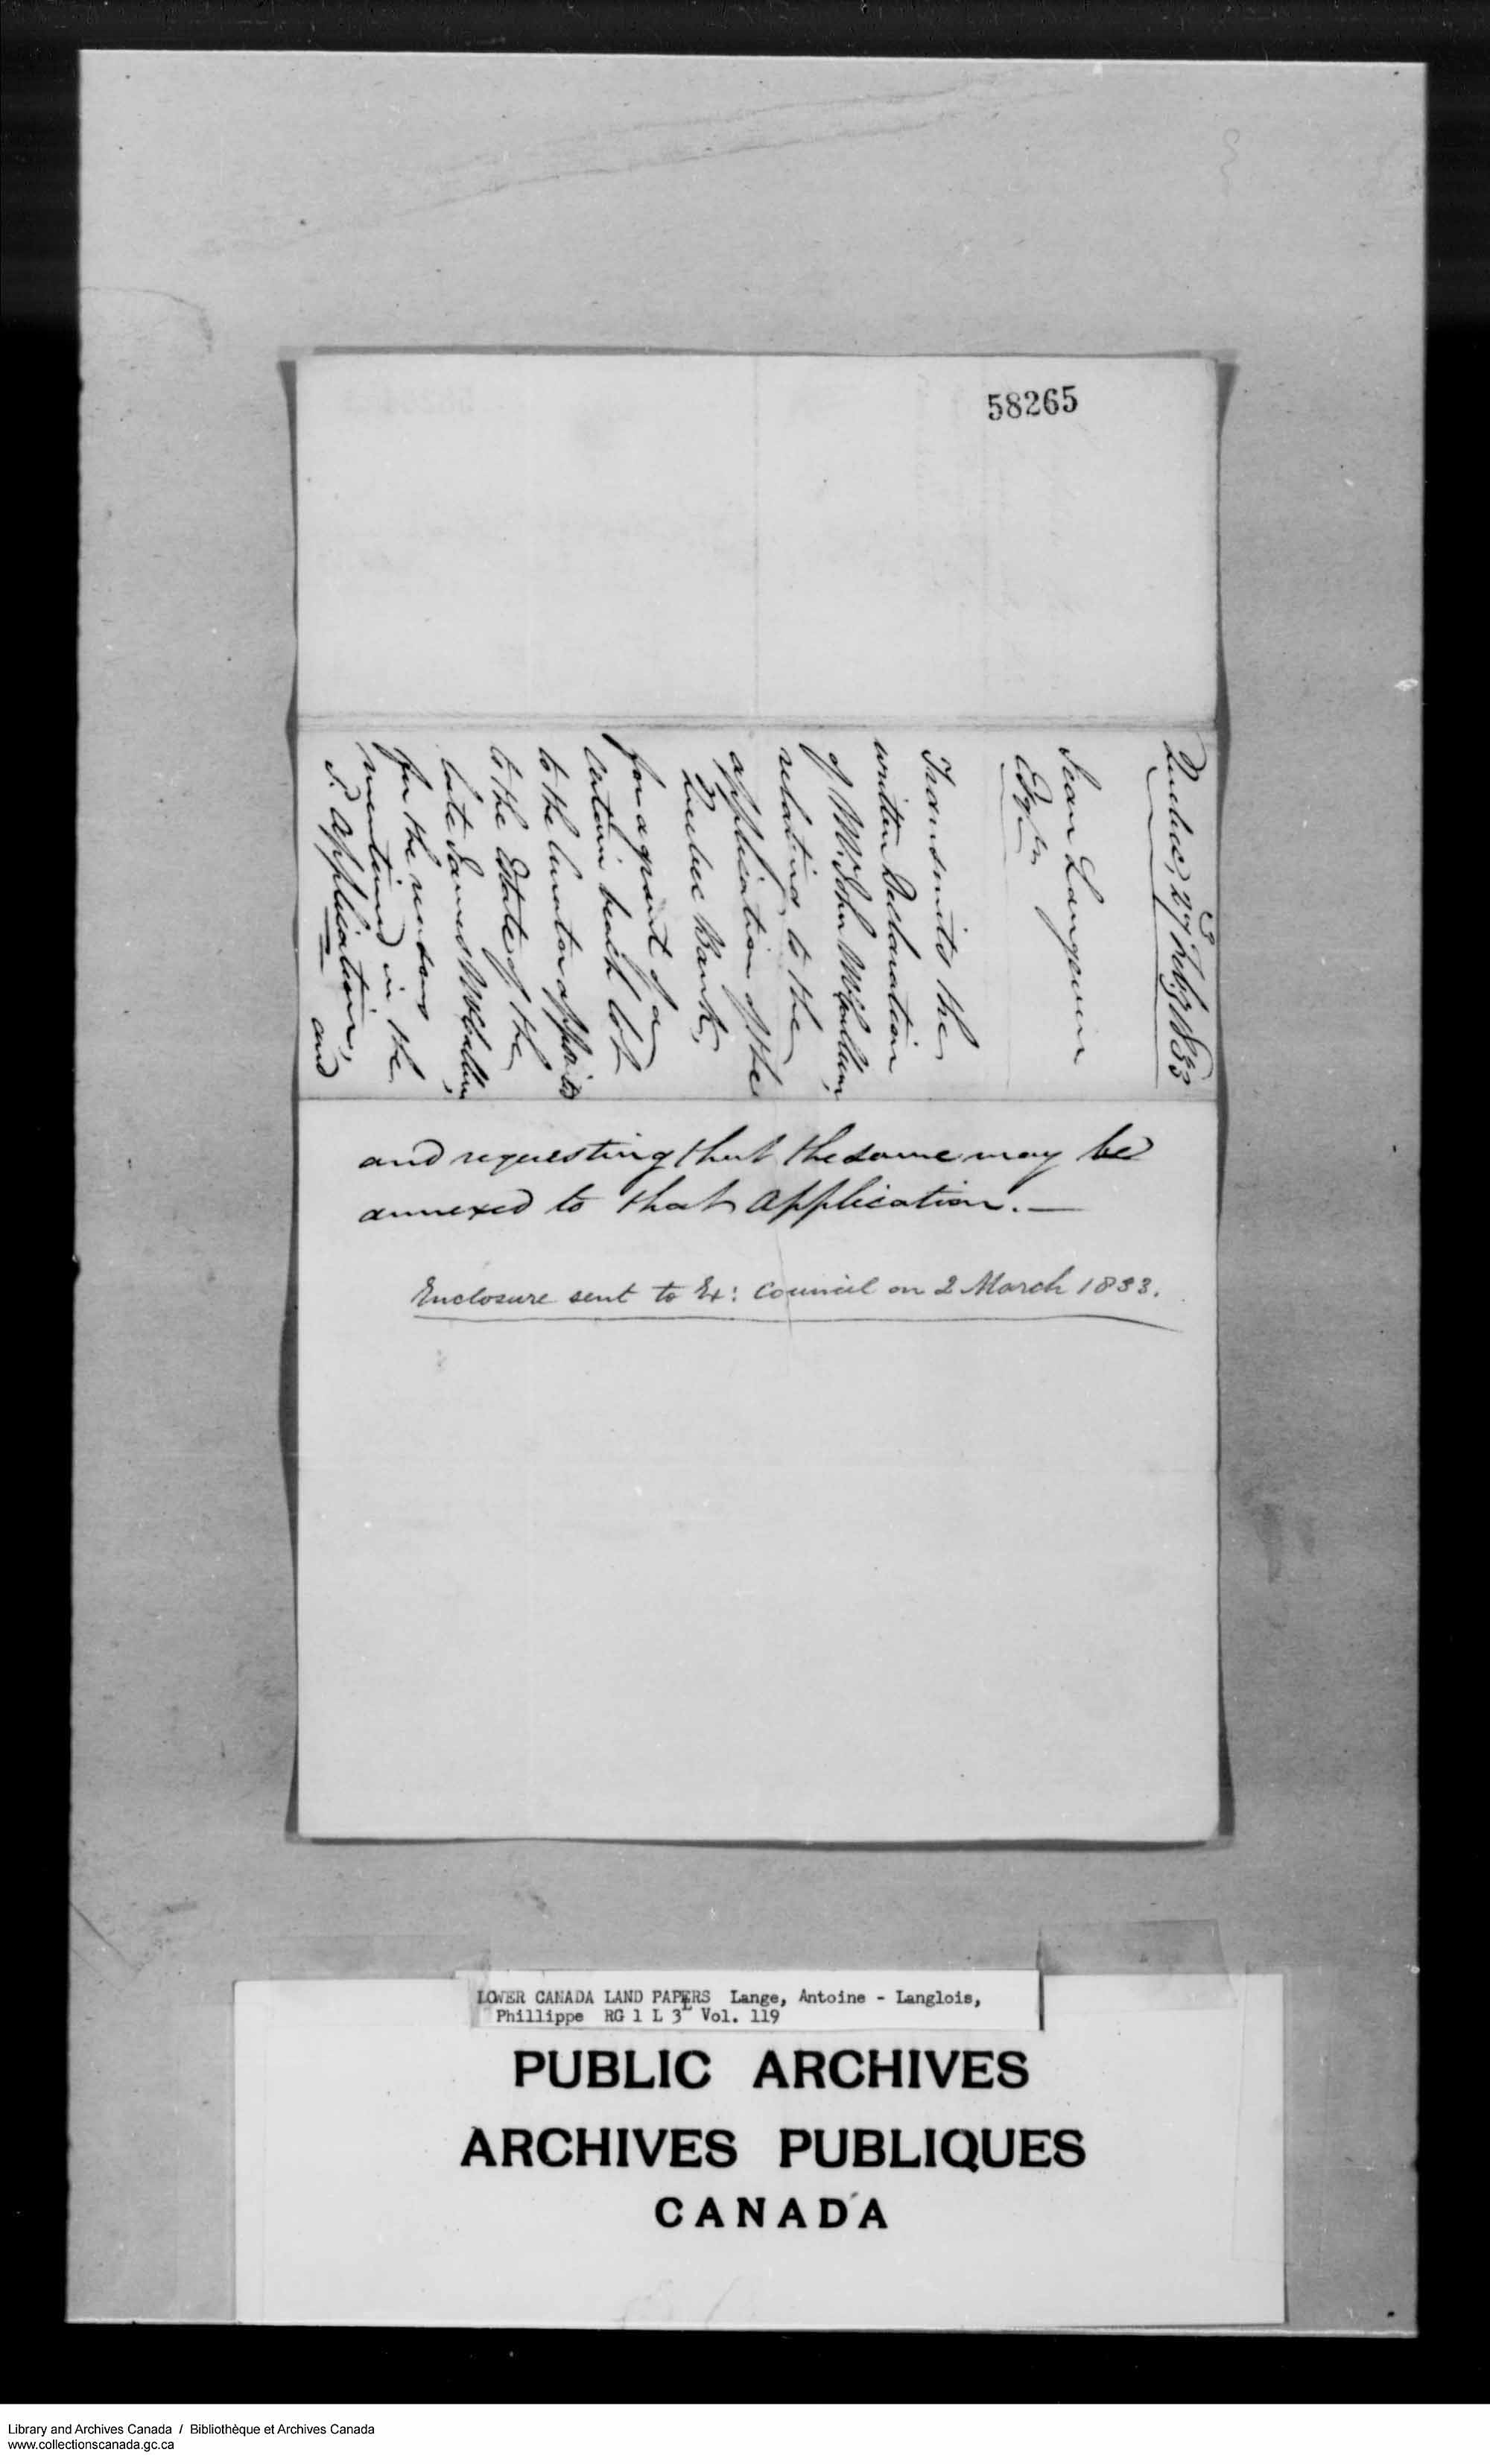 58265
Quebec, 27 Feby 1833
Jean Langevin
Esqr.
Transmits the
written Declaration
of Mr. John McCallum,
relating to the
application of the
Quebec Bank,
for a grant of a
certain beach lot
to the Curator
to the Estate of the
late James McCallum,
for the reasons
mentioned in the
sd. application,
and
and requesting that the same may be
annexed to that application. —
Enclosure sent to Ex: Council on 2 March 1833.
LOWER CANADA LAND PAPERS Lange, Antoine - Langlois,
Phillippe RG 1 L 3L Vol. 119
PUBLIC ARCHIVES
ARCHIVES PUBLIQUES
CANADA
Library and Archives Canada / Bibliothèque et Archives Canada
www.collectionscanada.gc.ca